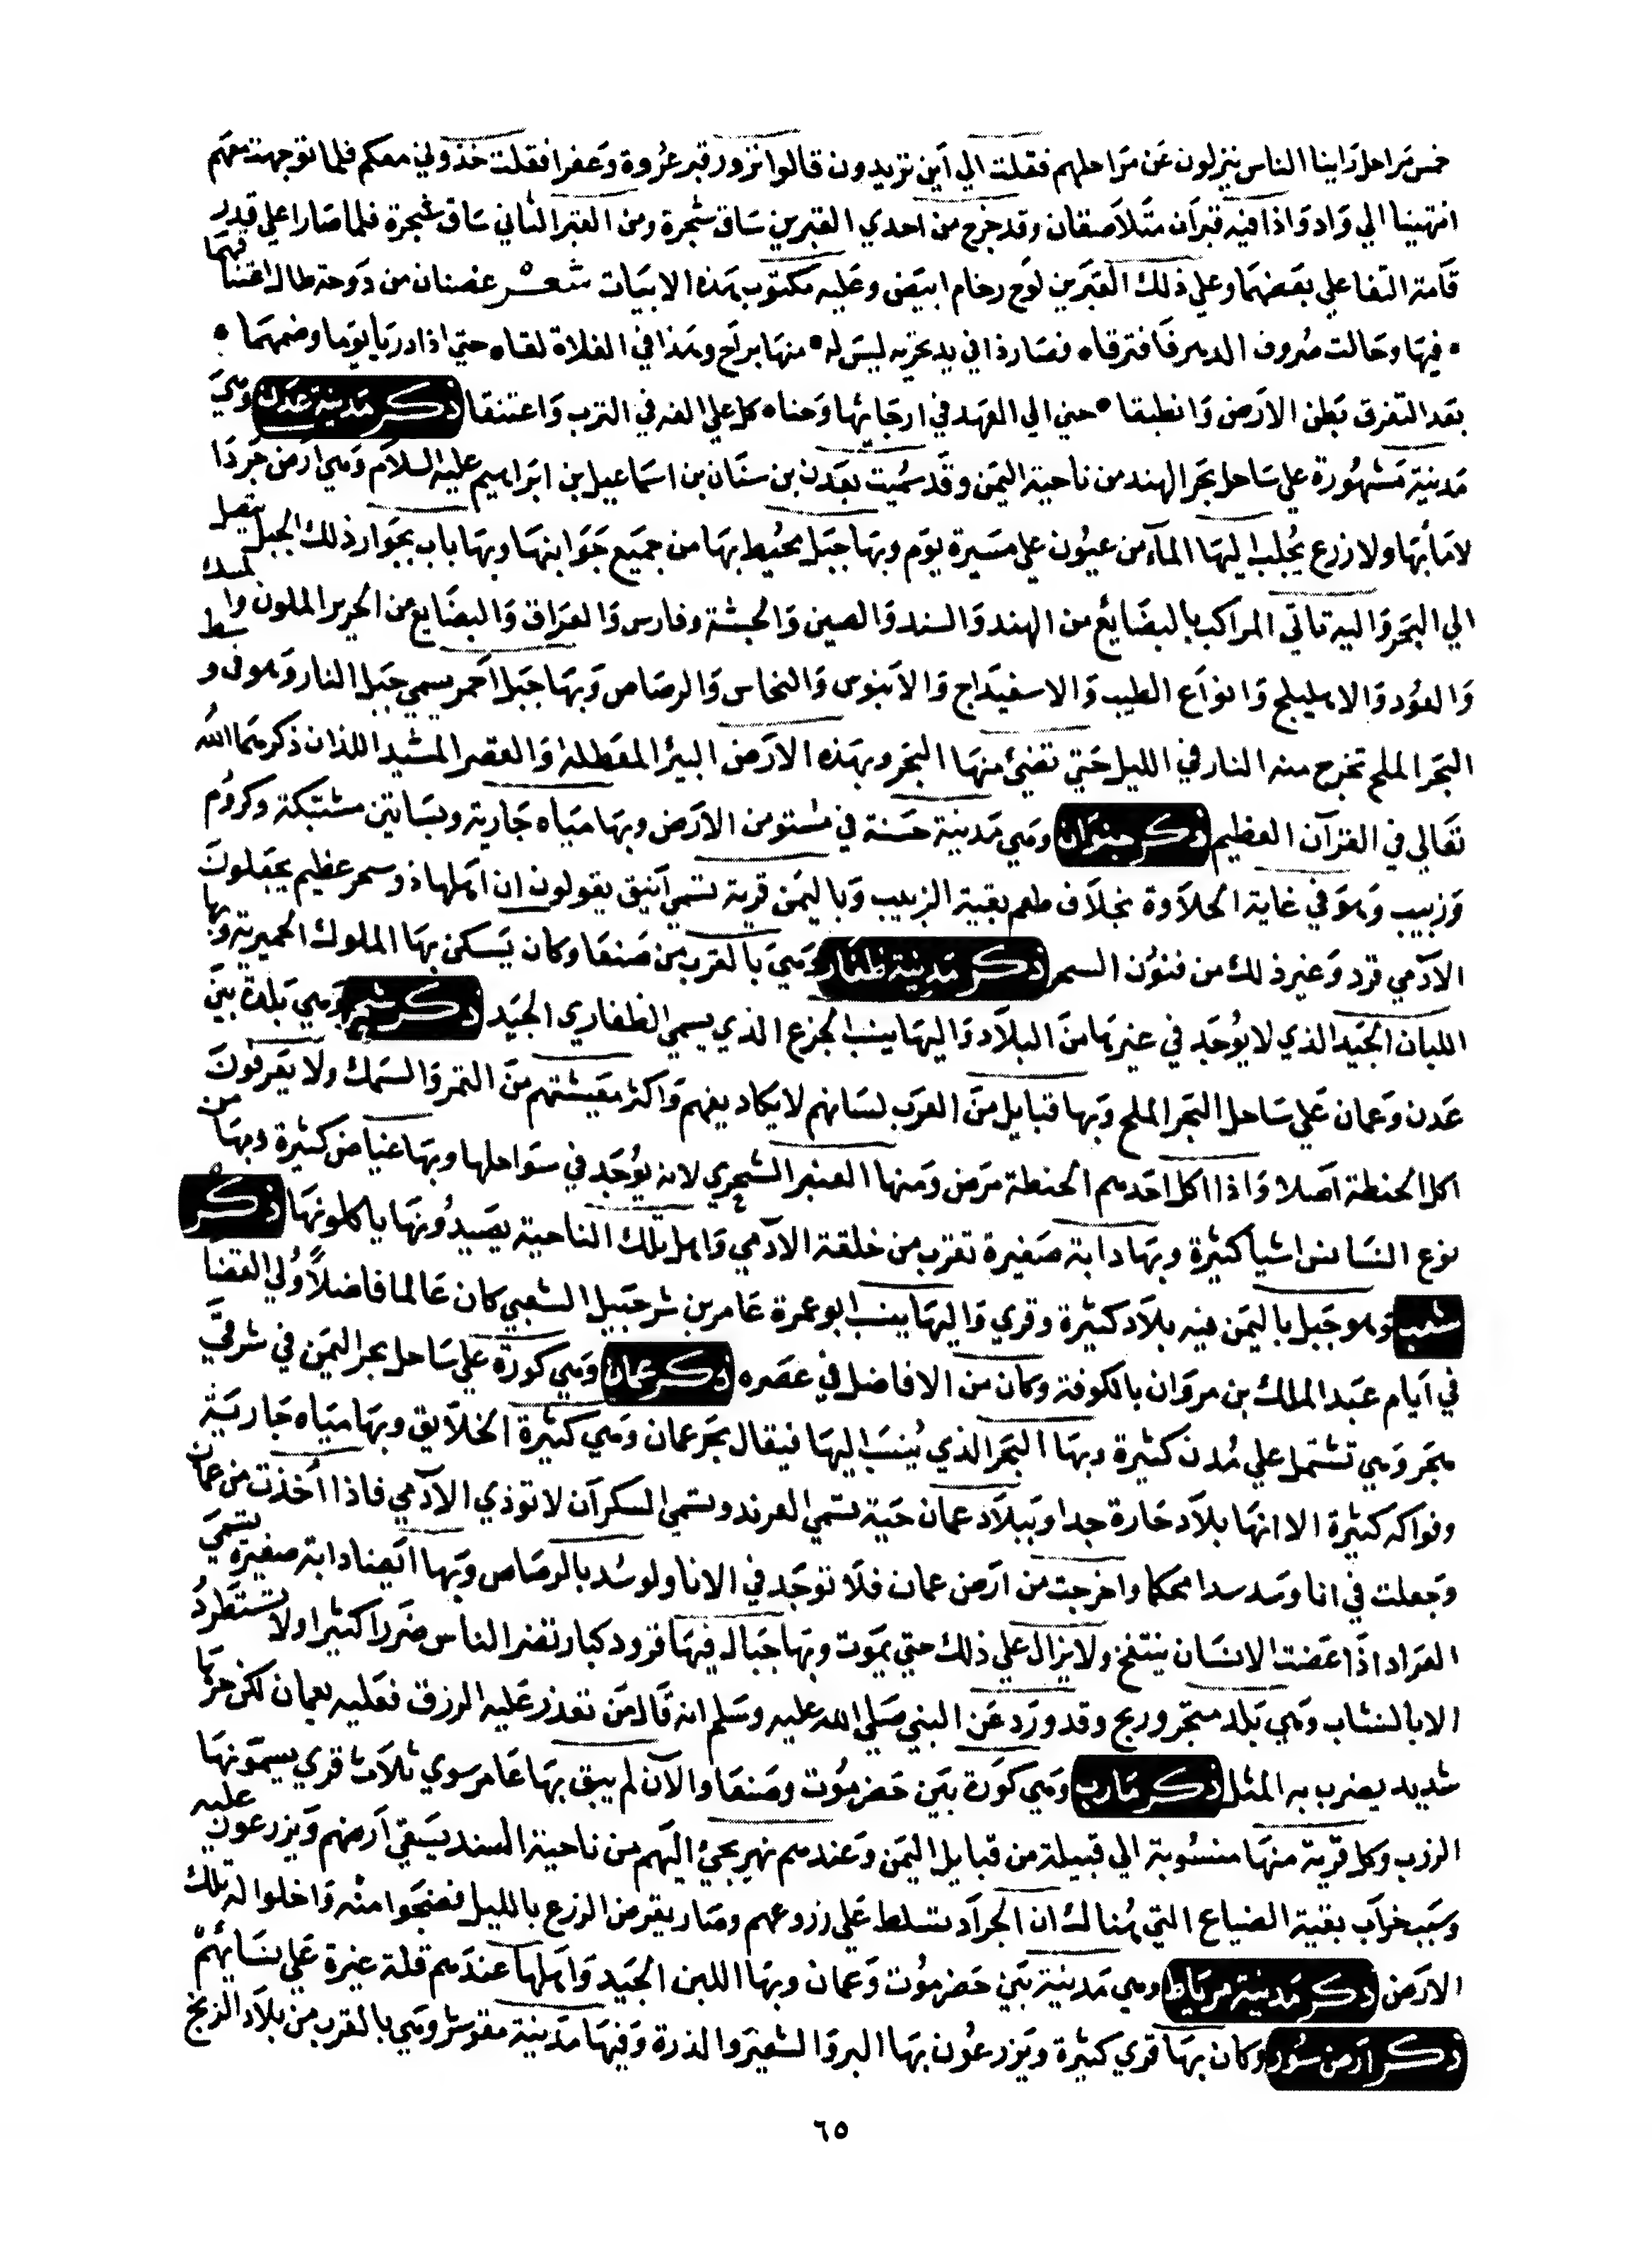 خمس مراحل راينا الناس ينزلون عن مراحلهم فقلت الي اين تريدون قالوا نزور قبر عروة وعفرا فقلت خذوني معكم فلما توجهت معهم
انتهينا الي واد واذا فيه قبران متلاصقان وقد خرج من احدي القبرين ساق شجرة ومن القبر الثاني ساق شجرة فلما صارا علي قدر
قامة التفا علي بعضهما وعلي ذلك القبرين لوح رخام ابيض وعليه مكتوب بهذه الابيات شعر غصنان من دوحة طال
فيها وحالت صروف الدهر فافترقا فصار ذا في يد تحزيه ليس له منها براح وهذا في الفلاة لقاه حتي اذا دريا يوما وضمهما
بعد التفرق بطن الارض وانطبقا حني الي العهد في ارجائها وحناه كل علي الفه في الترب واعتنقا ذكر مدينة عدن وهي
مدينة مشهورة علي ساحل بحر الهند من ناحية اليمن وقد سميت بعدن بن سنان بن اسماعيل بن ابراهيم عليه السلام وهي ارض جردا
لا ما بها ولا زرع يجلب اليها الماء من عيون علي مسيرة يوم وبها جبل يحيط بها من جميع جوانبها وبها باب بجوار ذلك الجبل يتصل
الي البحر واليه تاتي المراكب بالبضايع من الهند والسند والصين والحبشة وفارس والعراق والبضايع من الحرير الملون والمسك
والعود والاهليلج وانواع الطيب والاسفيداج والابنوس والنحاس والرصاص وبها جبل احمر يسمي جبل النار وهو في وسط
البحر الملح تخرج منه النار في الليل حتي تضئ منها البحر وبهذه الارض البير المعطلة والقصر المشيد اللذان ذكرهما الله
تعالي في القرآن العظيم ذكر وهي مدينة حسنة في مستو من الارض وبها مياه جارية وبساتين مشتبكة وكروم
وزبيب وهو في غاية الحلاوة بخلاف طعم بقية الزبيب وباليمن قرية تسمي انيق يقولون ان اهلها ذو سحر عظيم يجعلون
الآدمي قرد وغير ذلك من فنون السحر ذكر مدينة ظفار وهي بالقرب من صنعا وكان يسكن بها الملوك الحميرية وبها
اللبان الجيد الذي لا يوجد في غيرها من البلاد واليها ينسب الجزع الذي يسمي الظفاري الجيد ذكر شحر وهي بلدة بين
عدن وعمان علي ساحل البحر الملح وبها قبايل من العرب لسانهم لا يكاد يفهم واكثر معيشتهم من التمر والسمك ولا يعرفون
اكل الحنطة اصلا واذا اكل احدهم الحنطة مرض ومنها العنبر الشحري لانه يوجد في سواحلها وبها غياض كثيرة وبها من
نوع النسانس اشيا كثيرة وبها دابة صغيرة تقرب من خلقة الآدمي واهل تلك الناحية يصيدونها ياكلونها ذكر
شعب وهو جبل باليمن فيه بلاد كثيرة وقري واليها ينسب ابو عمرة عامر بن شرحبيل الشعبي كان عالما فاضلا ولي القضا
في ايام عبد الملك بن مروان بالكوفة وكان من الافاضل في عصره ذكر عمان وهي كورة علي ساحل بحر اليمن في شرقي
هجر وهي تشتمل علي مدن كثيرة وبها البحر الذي ينسب اليها فيقال بحر عمان وهي كثيرة الخلايق وبها مياه جارية
وفواكه كثيرة الا انها بلاد حارة جدا وببلاد عمان حية تسمي العربد وتسمي السكران لا توذي الآدمي فاذا اخذت من عمان
وجعلت في انا وسد سدا محكما واخرجت من ارض عمان فلا توجد في الانا ولو سد بالرصاص وبها ايضا دابة صغيرة تسمي
القراد اذا عضت الانسان ينتفخ ولا يزال علي ذلك حتي يموت وبها جبال فيها قرود كبار تضر الناس ضررا كثيرا ولا تستطرد
الا بالنشاب وهي بلد متجر وربح وقد ورد عن النبي صلي الله عليه وسلم انه قال من تعذر عليه الرزق فعليه بعمان لكن حرها
شديد يضرب به المثل ذكر مارب وهي كورة بين حضرموت وصنعا والآن لم يبق بها عامر سوي ثلاث قري يسمونها
الرزب وكل قرية منها منسوبة الي قبيلة من قبايل اليمن وعندهم نهر يجئ اليهم من ناحية السند يسقي ارضهم ويزرعون عليه
وسبب خراب بقية الضياع التي هنالك ان الجراد تسلط علي زروعهم وصار يقرض الزرع بالليل فضجوا منه واخلوا له تلك
الارض ذكر مدينة مرباط وهي مدينة بين حضرموت وعمان وبها اللبن الجيد واهلها عندهم قلة غيرة علي نسائهم
ذكر ارض سود وكان بها قري كثيرة ويزرعون بها البر والشعير والذرة وفيها مدينة مقوشر وهي بالقرب من بلاد الزنج
٦٥